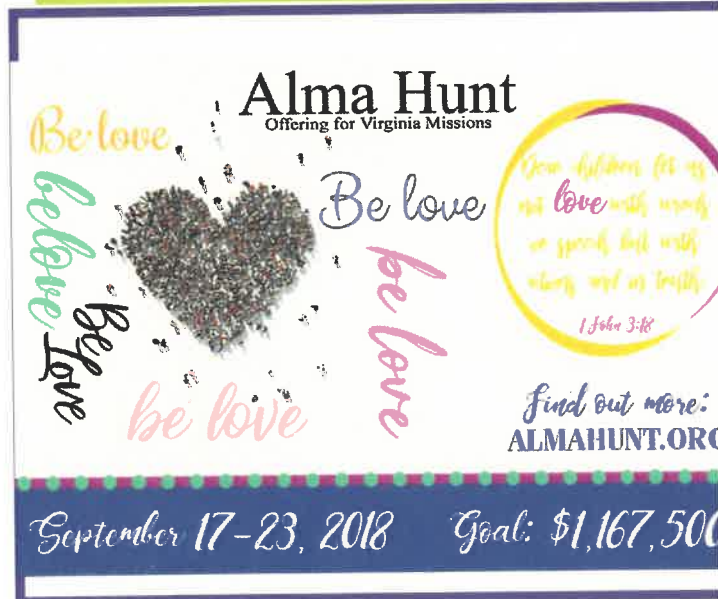 Alma Hunt
Offering for Virginia Missions
Be love
be love
Be love
Be love
be love
be love
Dear children let us
not love with words
or speech but with
and in truth.
1 John 3:18
Find out more:
ALMAHUNT.ORG
September 17-23, 2018
Goal: $1,167,500